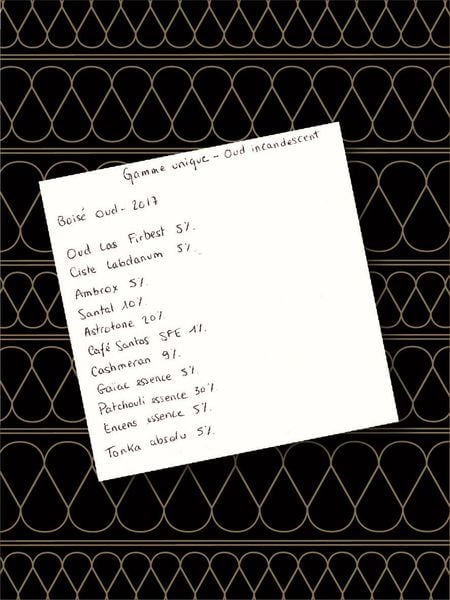 Gamme unique - Oud incandescent
Boisé Oud - 2017
Oud Las Firbest 5%.
Ciste Labdanum 5%.
Ambrox 5%.
Santal 10%.
Astrotone 20%.
Café Santos SFE 1%.
Cashmeran 9%.
Gaiac essence 5%.
Patchouli essence 30%.
Encens essence 5%.
Tonka absolu 5%.